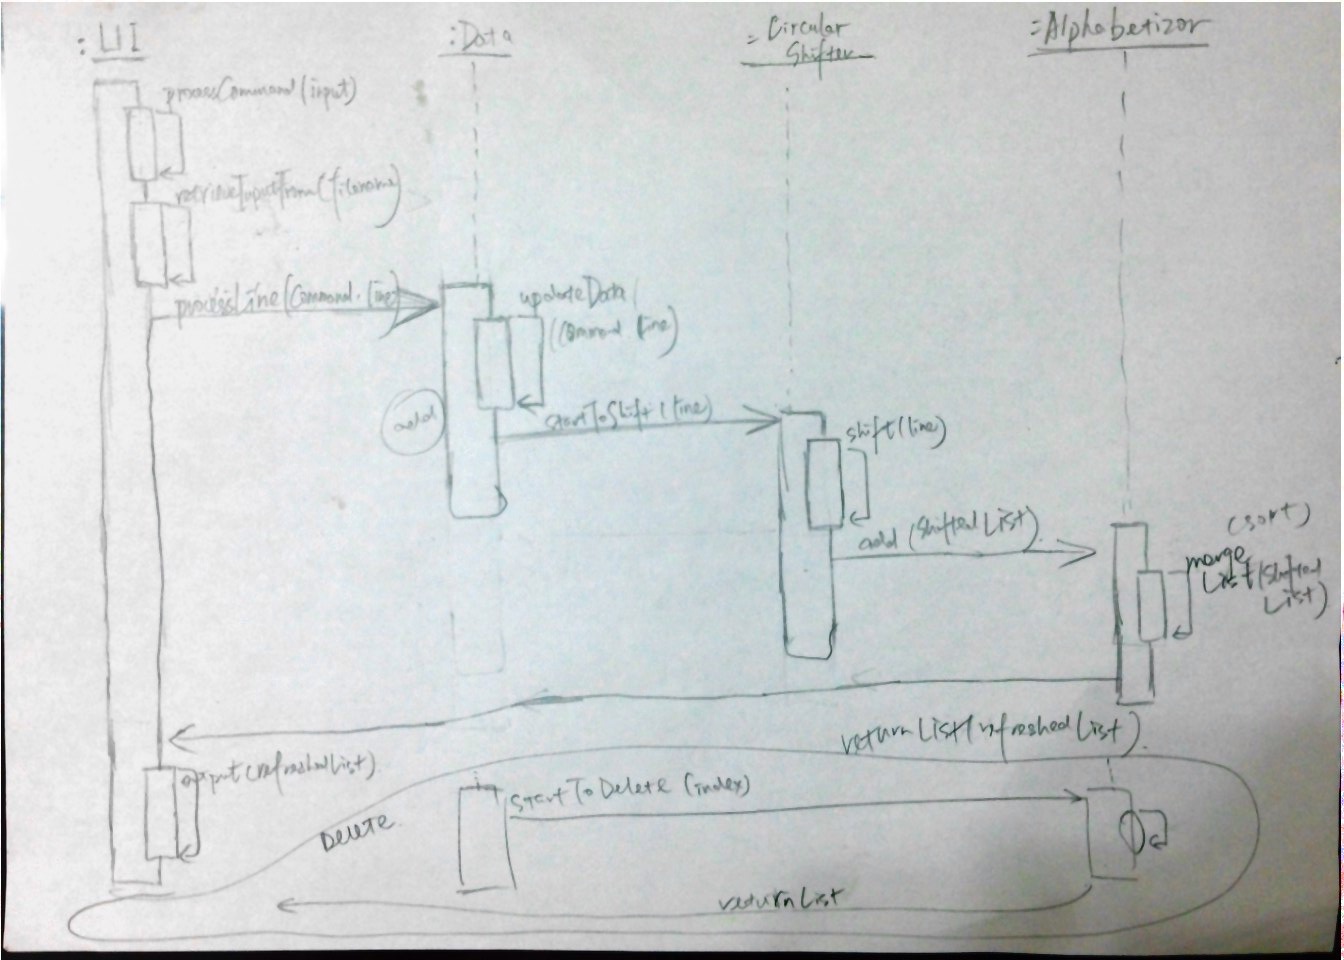 :UI
:Data
:Circular
Shifter
:Alphabetizor
processCommand(input)
retrieveInputFrom(filename)
processLine(Command, line)
updateData(
Command line)
add
startToShift(line)
shift(line)
add (Shifted List).
(sort)
merge
List(Shifted
List)
returnList(refreshedList).
output(refreshedList)
Delete.
StartToDelete (index)
returnList